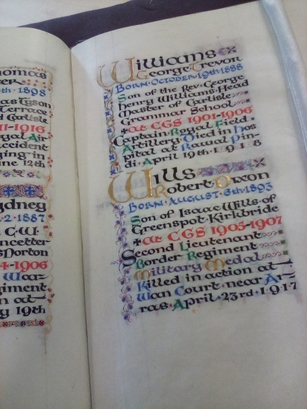 homas
1898
Tyson
Terrace
of Carlisle
11-1916
Accident
ging in
June 12th
ydney
2. 1887
G.W.
ncetter
Norton
4-1906
Wan
giment
at
y 19th
Williams
George Trevor
Born October 19th 1888
Son of the Rev. George
Henry Williams Head
Master of Carlisle
Grammar School
at CGS 1901-1906
Captain Royal Field
Artillery Died in Hos
pital at Rawal Pin-
di April 19th 1918
Wills
Robert Dixon
Born August 8th 1893
Son of Isaac Wills of
Greenspot Kirkbride
at CGS 1905-1907
Second Lieutenant
Border Regiment
Military Medal
Killed in action at
Wan Court near Ar-
ras April 23rd 1917